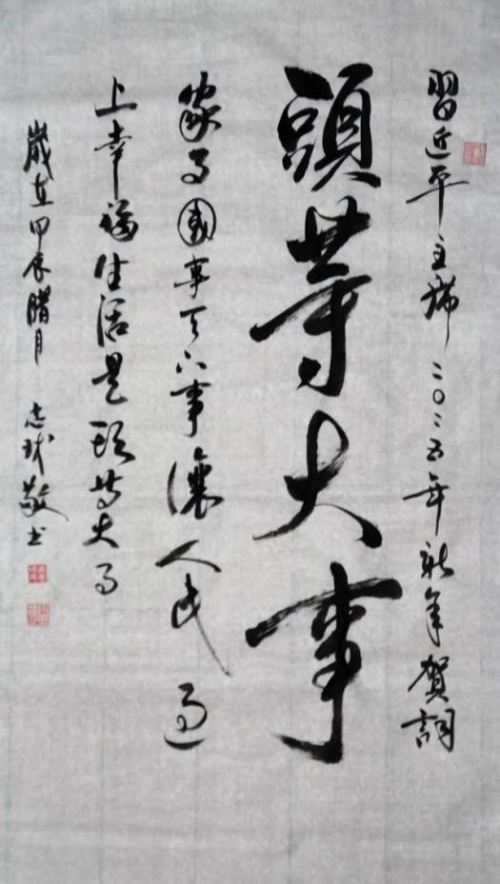 習近平主席二〇二五年新年賀詞
頭等大事
家事國事天下事讓人民過
上幸福生活是頭等大事
歲在甲辰臘月 志球敬书